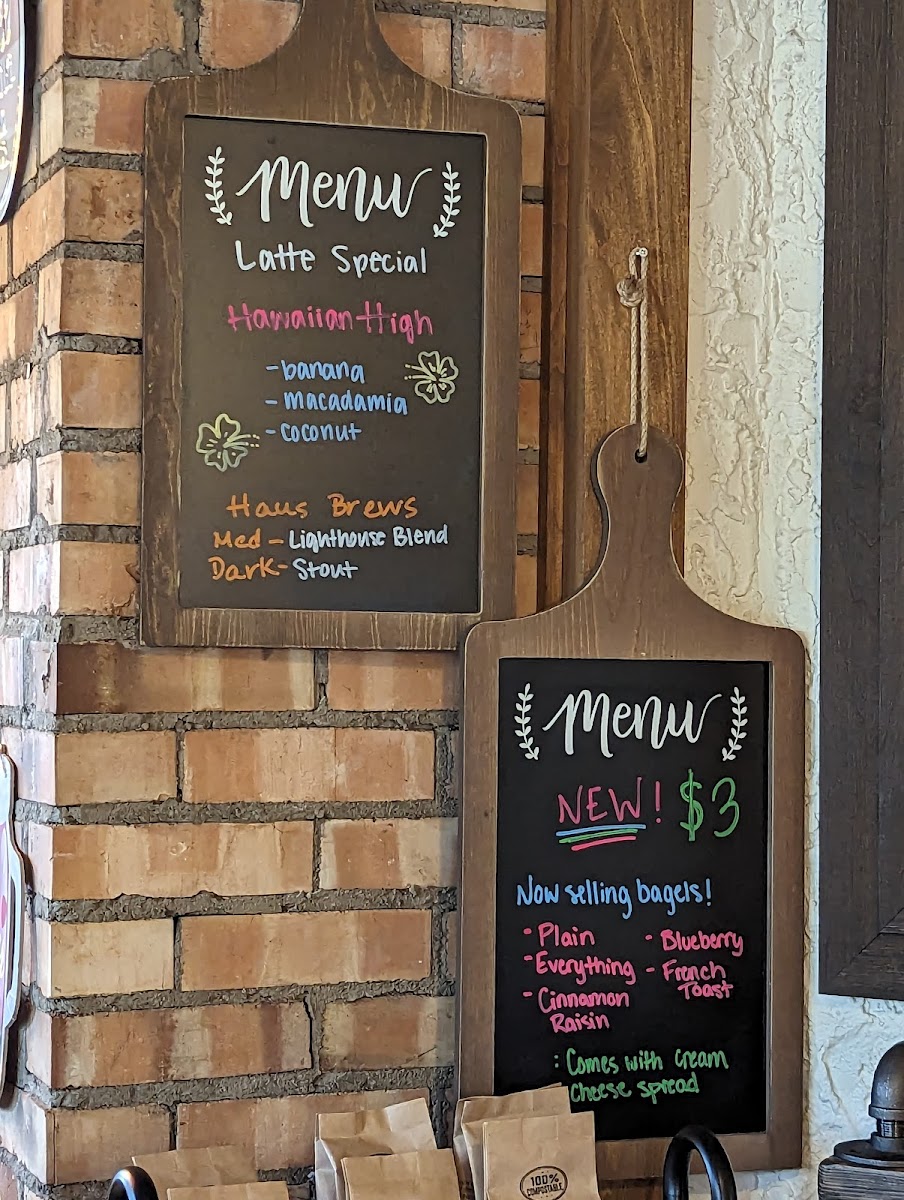 Menu
Latte Special
Hawaiian High
- banana
- macadamia
- coconut
Haus Brews
Med - Lighthouse Blend
Dark - Stout
Menu
NEW! $3
Now selling bagels!
- Plain
- Everything
- Cinnamon
Raisin
- Blueberry
- French
Toast
: Comes with cream
cheese spread
100%
COMPOSTABLE